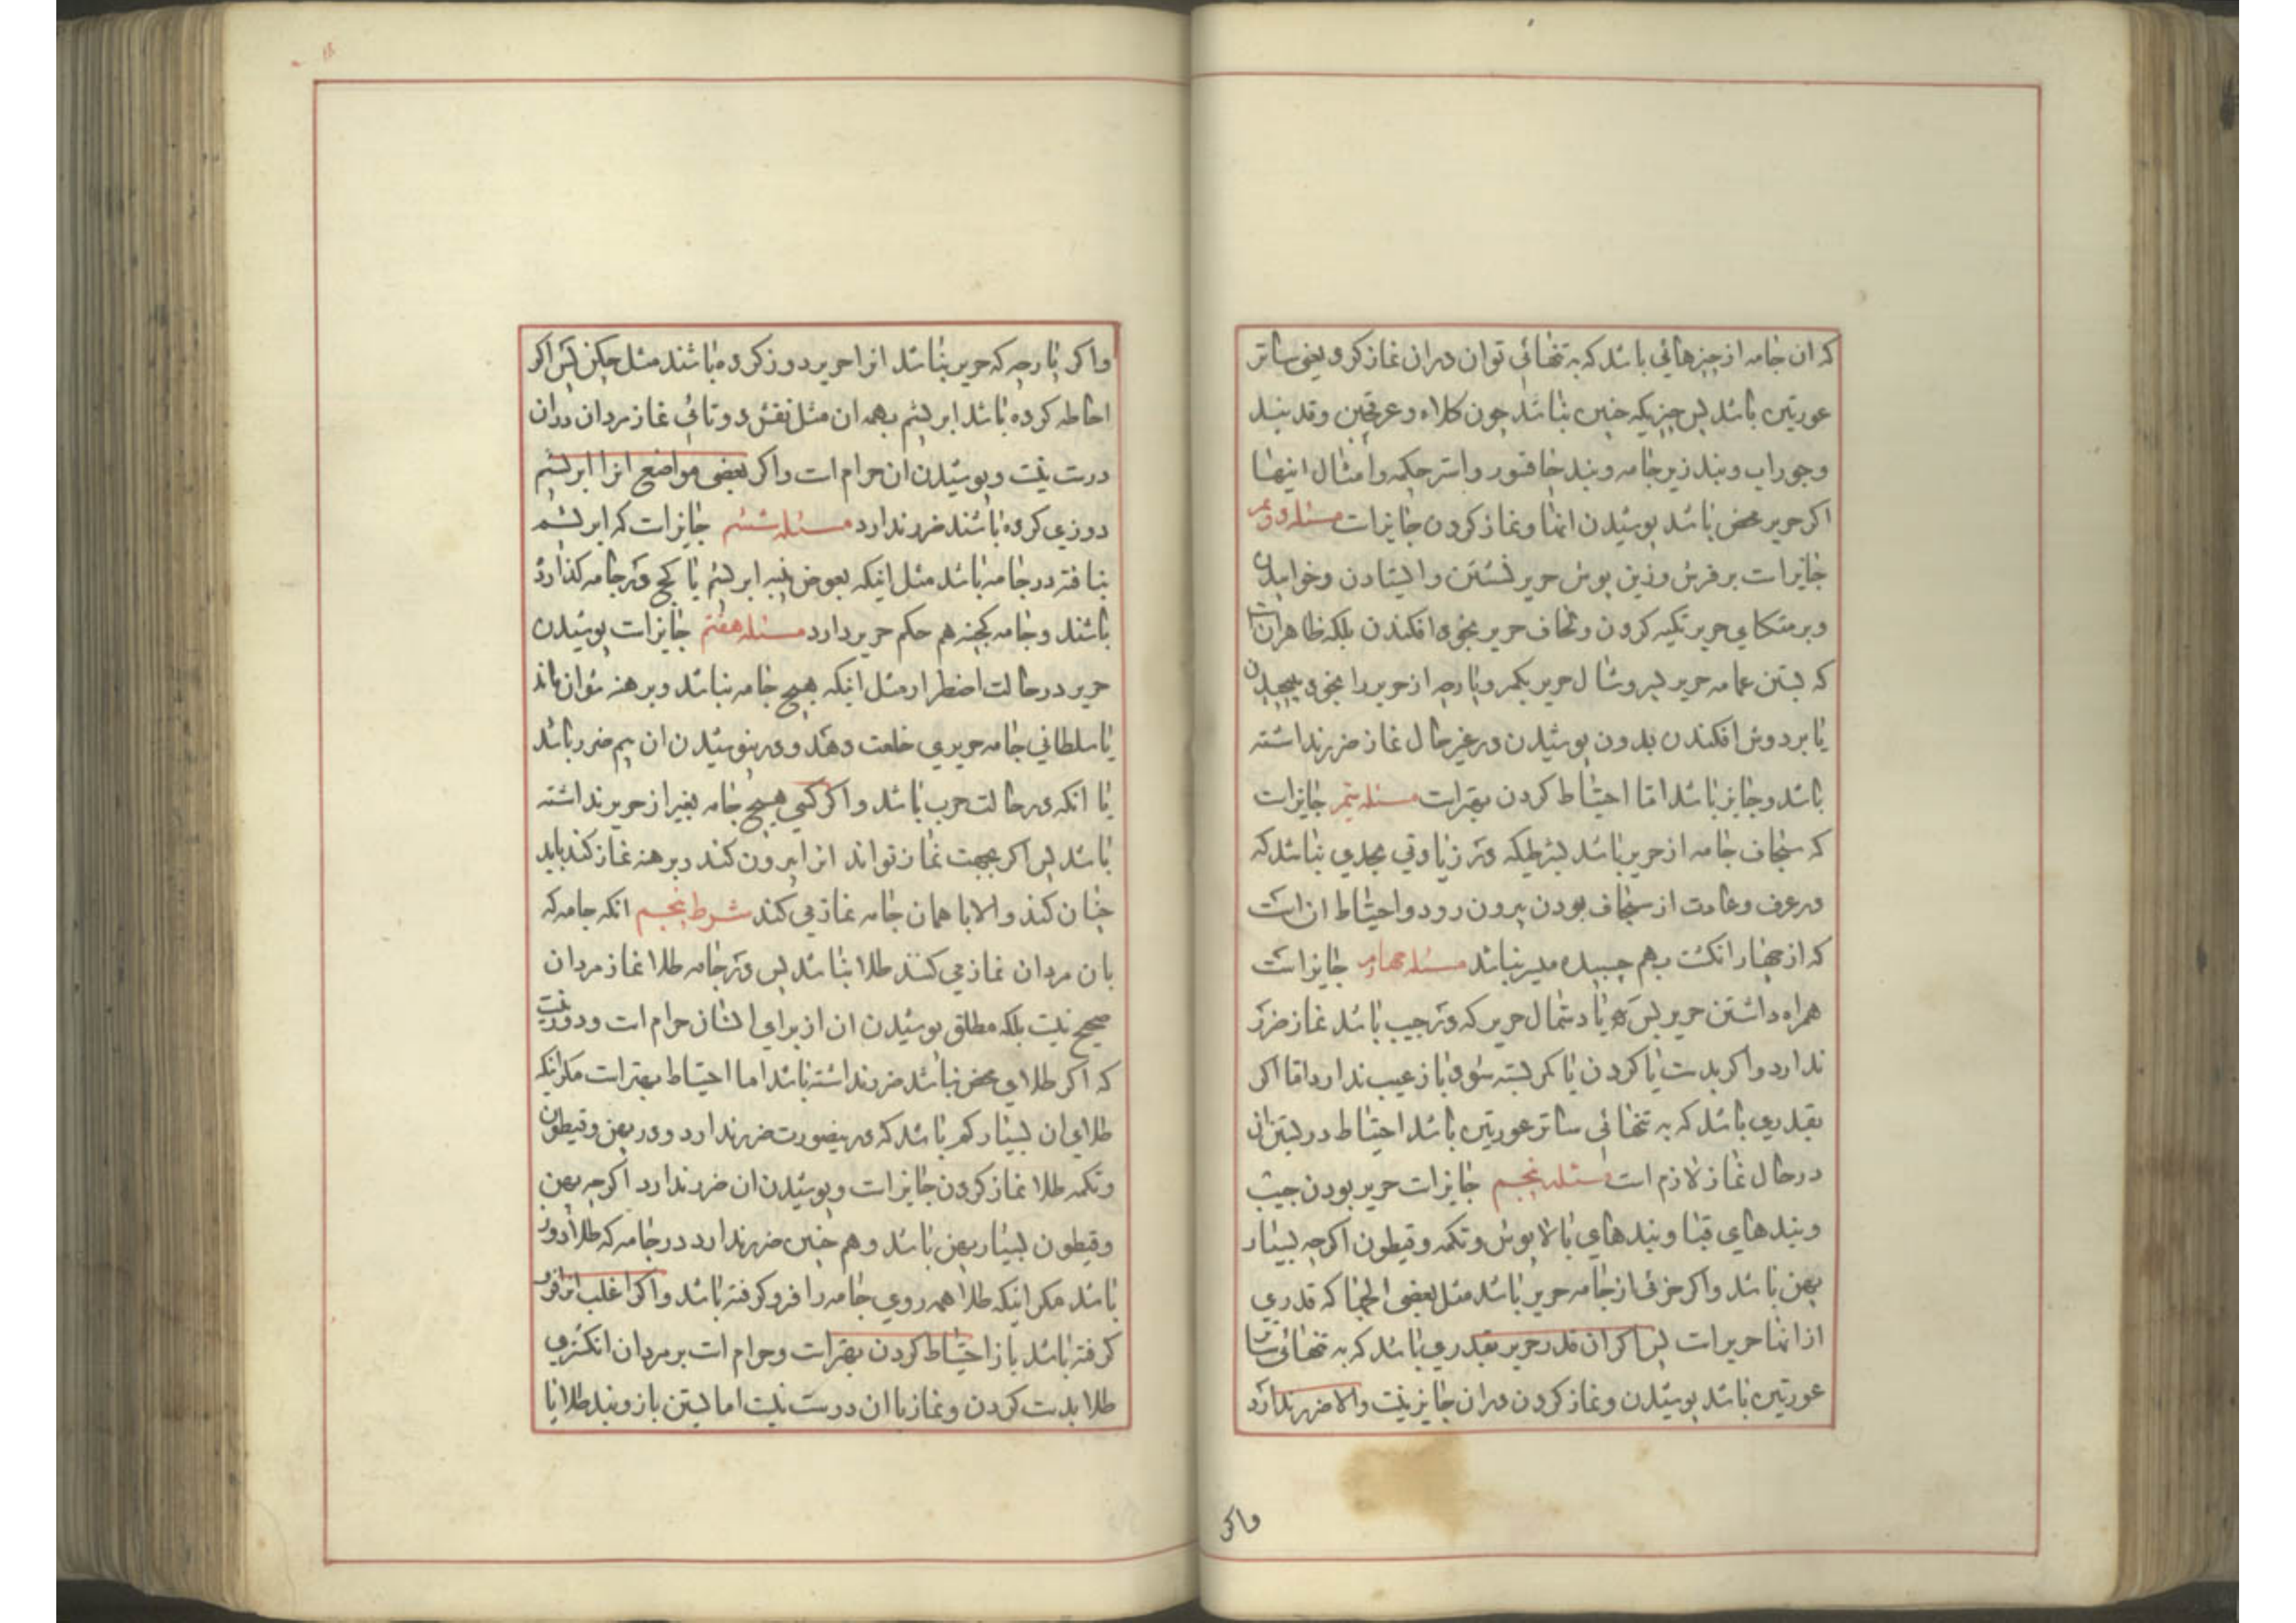 که ان جامه از چیزهائی باشد که به تنهائی توان دران نماز کرد یعنی ساتر
عورتین باشد پس چیزیکه چنین نباشد چون کلاه و عرقچین و قد بند
و جوراب و بند زیر جامه و بند خاقنور و استر چکمه و امثال اینها
اکر حریر محض باشد پوشیدن انها و نماز کردن جایز است مسئله دویم
جایز است بر فرش و زین پوش حریر نشستن و ایستادن و خوابیدن
و بر متکای حریر تکیه کردن و لحاف حریر بخود افکندن بلکه ظاهر انست
که بستن عمامه حریر بسر و شال حریر بکمر و پارچه از حریر را بخود پیچیدن
یا بر دوش افکندن بدون پوشیدن در غیر حال نماز ضرر نداشته
باشد و جایز باشد اما احتیاط کردن بهتر است مسئله سیم جایز است
که سنجاف جامه از حریر باشد بشرطیکه در زیادتی بحدی نباشد که
در عرف و عادت از سنجاف بودن بیرون رود و احتیاط ان است
که از چهار انکشت بهم چسبیده میسر نباشد مسئله چهارم جایز است
همراه داشتن حریر پس یا دستمال حریر که در جیب باشد نماز ضرر
ندارد و اکر بدست یا کردن یا کمر بسته شود باز عیب ندارد اما اکر
بقدری باشد که به تنهائی ساتر عورتین باشد احتیاط در بستن ان
در حال نماز لازم است مسئله پنجم جایز است حریر بودن جیب
و بندهای قبا و بندهای بالاپوش و تکمه و قیطون اکرچه بسیار
پهن باشد و اکر جزئی از جامه حریر باشد مثل بعضی الجها که قدری
از انها حریر است پس اکر ان قدر حریر بقدری باشد که به تنهائی ساتر
عورتین باشد پوشیدن و نماز کردن دران جایز نیست والا ضرر ندارد
واکر
واکر پارچه که حریر نباشد انرا حریر دوز کرده باشند مثل چکن پس اکر
احاطه کرده باشد ابریشم بهمه ان مثل نقش دوتائی نماز مردان دران
درست نیست و پوشیدن ان حرام است و اکر بعضی مواضع انرا ابریشم
دوزی کرده باشند ضرر ندارد مسئله ششم جایز است که ابریشم
نبافته در جامه باشد مثل اینکه بعوض پنبه ابریشم یا کج در جامه کذارده
باشند و جامه کجینه هم حکم حریر دارد مسئله هفتم جایز است پوشیدن
حریر در حالت اضطرار مثل اینکه هیچ جامه نباشد و برهنه نتوان ماند
یا سلطانی جامه حریری خلعت دهد و در نپوشیدن ان بیم ضرر باشد
یا انکه در حالت حرب باشد و اکر کسی هیچ جامه بغیر از حریر نداشته
باشد پس اکر بجهت نماز تواند انرا بیرون کند و برهنه نماز کند باید
چنان کند والا با همان جامه نماز می کند شرط پنجم انکه جامه که
بان مردان نماز می کنند طلا نباشد پس در جامه طلا نماز مردان
صحیح نیست بلکه مطلق پوشیدن ان از برای ایشان حرام است و دور نیست
که اکر طلای محض نباشد ضرر نداشته باشد اما احتیاط بهتر است مکر انکه
طلای ان بسیار کم باشد که در ینصورت ضرر ندارد و در پهن و قیطون
و تکمه طلا نماز کردن جایز است و پوشیدن ان ضرر ندارد اکرچه پهن
و قیطون بسیار پهن باشد و هم چنین ضرر ندارد در جامه که طلا دوز
باشد مکر اینکه طلا همه روی جامه را فرو کرفته باشد و اکر اغلب انرا فرو
کرفته باشد باز احتیاط کردن بهتر است و حرام است بر مردان انکشتری
طلا بدست کردن و نماز با ان درست نیست اما بستن بازوبند طلا یا